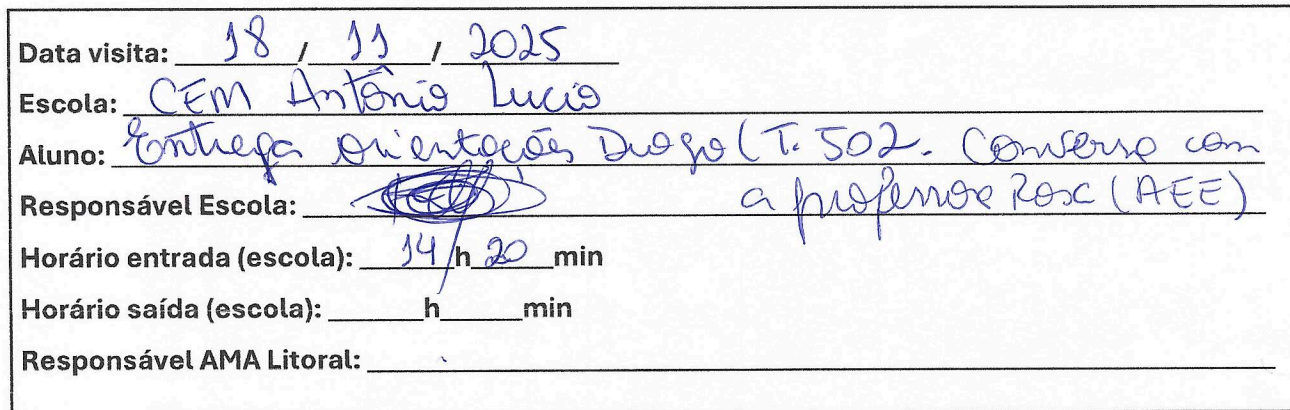 Data visita: 18 / 11 / 2025
Escola: CEM Antônio Lucio
Aluno: Entrega orientações Diogo (T. 502. Conversa com
Responsável Escola: a professora Rosa (AEE)
Horário entrada (escola): 14 h 20 min
Horário saída (escola): ______h______min
Responsável AMA Litoral: